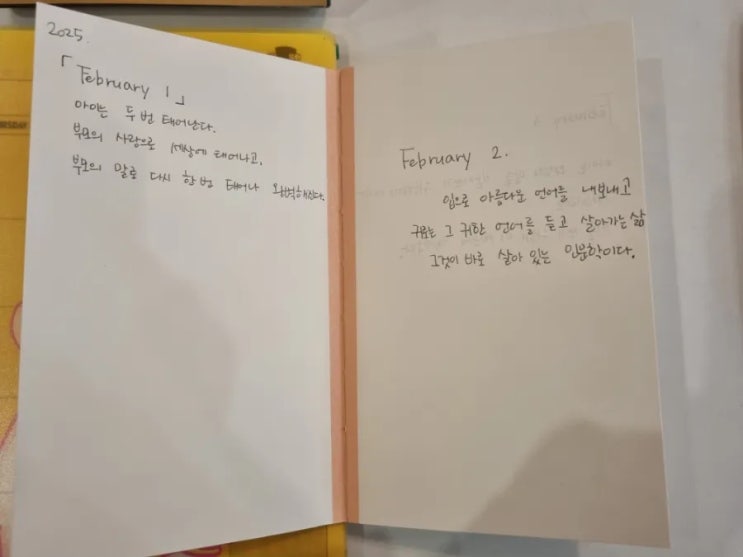 2025.
「February 1」
아이는 두 번 태어난다.
부모의 사랑으로 세상에 태어나고,
부모의 말로 다시 한 번 태어나 완벽해진다.
February 2.
입으로 아름다운 언어를 내보내고
귀로는 그 귀한 언어를 듣고 살아가는 삶
그것이 바로 살아 있는 인문학이다.
RSDAY